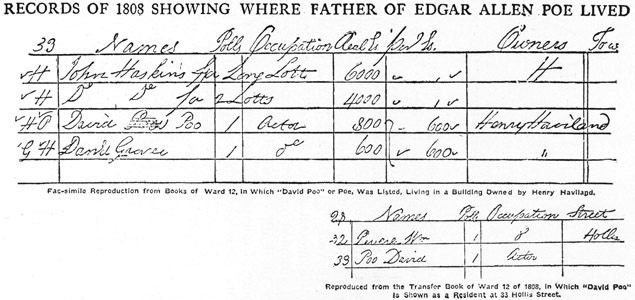 RECORDS OF 1808 SHOWING WHERE FATHER OF EDGAR ALLEN POE LIVED
33 Names Polls Occupation Real Es Per Es. Owners Tow
H John Haskins for Long Lotts 6000 H
H Do Do for 2 Lotts 4000
H P David Poo 1 Actor 800 600 Henry Haviland
G H Daniel Grover 1 do 600 600 "
Fac-simile Reproduction from Books of Ward 12, in Which "David Poo" or Poe, Was Listed, Living in a Building Owned by Henry Haviland.
28 Names Polls Occupation Street
32 Wm 1 Hollis
33 Poo David 1 Actor
Reproduced from the Transfer Book of Ward 12 of 1808, in Which "David Poo"
is Shown as a Resident at 33 Hollis Street.